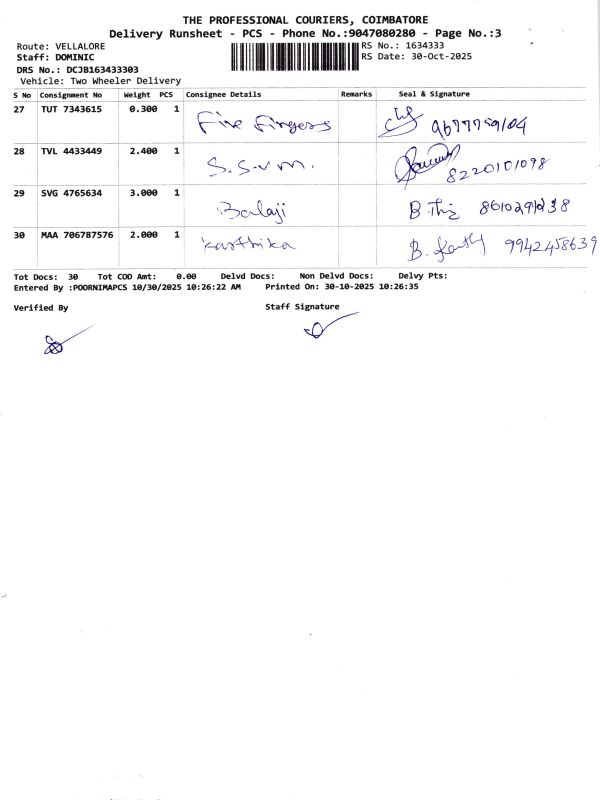 THE PROFESSIONAL COURIERS, COIMBATORE
Delivery Runsheet - PCS - Phone No.:9047080280 - Page No.:3
Route: VELLALORE
RS No.: 1634333
Staff: DOMINIC
RS Date: 30-Oct-2025
DRS No.: DCJB163433303
Vehicle: Two Wheeler Delivery
S No Consignment No Weight PCS Consignee Details Remarks Seal & Signature
27 TUT 7343615 0.300 1 Five Fingers
28 TVL 4433449 2.400 1 S.S.V.M. 8220101098
29 SVG 4765634 3.000 1 Balaji
30 MAA 706787576 2.000 1 Karthika 9942458639
Tot Docs: 30 Tot COD Amt: 0.00 Delvd Docs: Non Delvd Docs: Delvy Pts:
Entered By :POORNIMAPCS 10/30/2025 10:26:22 AM Printed On: 30-10-2025 10:26:35
Verified By Staff Signature